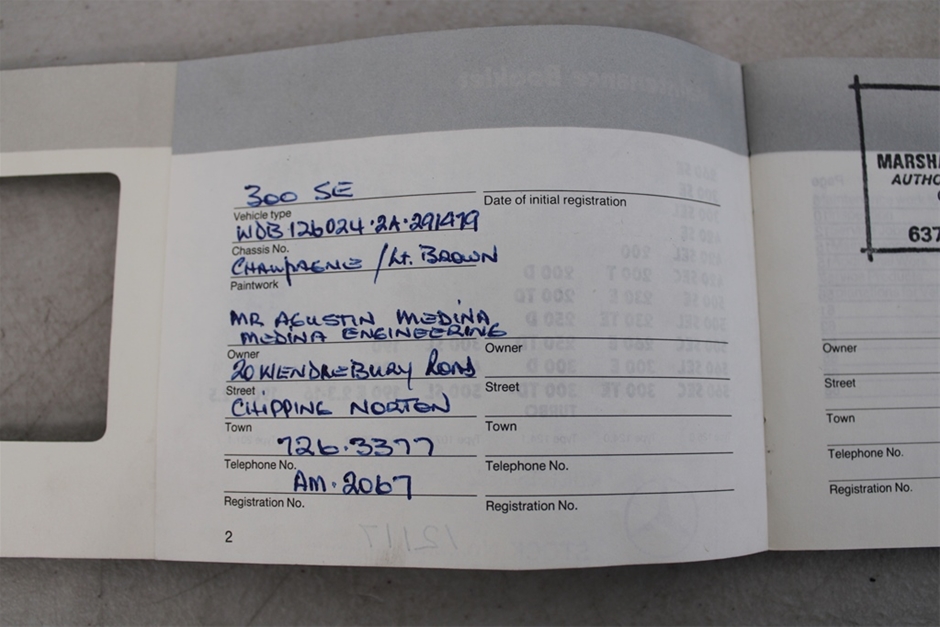 300 SE
Vehicle type
WDB·126024·2A·291479
Chassis No.
CHAMPAGNE / LT. BROWN
Paintwork
MR AGUSTIN MEDINA
MEDINA ENGINEERING
Owner
20 WENDLEBURY ROAD
Street
CHIPPING NORTON
Town
726·3377
Telephone No.
AM·2067
Registration No.
2
Date of initial registration
Owner
Street
Town
Telephone No.
Registration No.
MARSH
AUTHO
637
Owner
Street
Town
Telephone No.
Registration No.